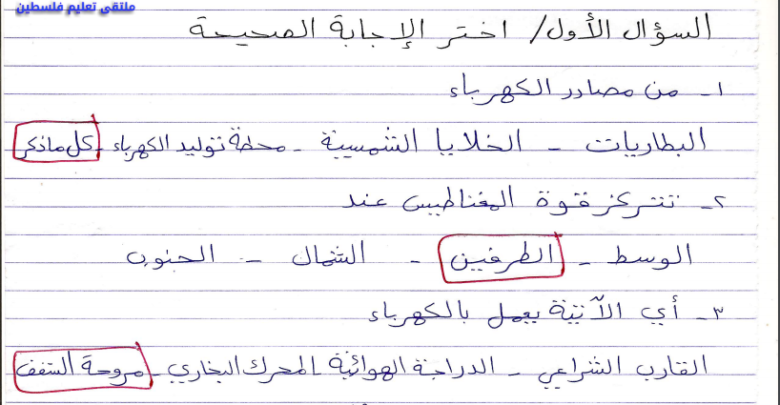 ملتقى تعليم فلسطين
السؤال الأول/ اختر الإجابة الصحيحة
١- من مصادر الكهرباء
البطاريات - الخلايا الشمسية - محطة توليد الكهرباء - كل ماذكر
٢- تتركز قوة المغناطيس عند
الوسط - الطرفين - الشمال - الجنوب
٣- أي الآتية يعمل بالكهرباء
القارب الشراعي - الدراجة الهوائية - المحرك البخاري - مروحة السقف